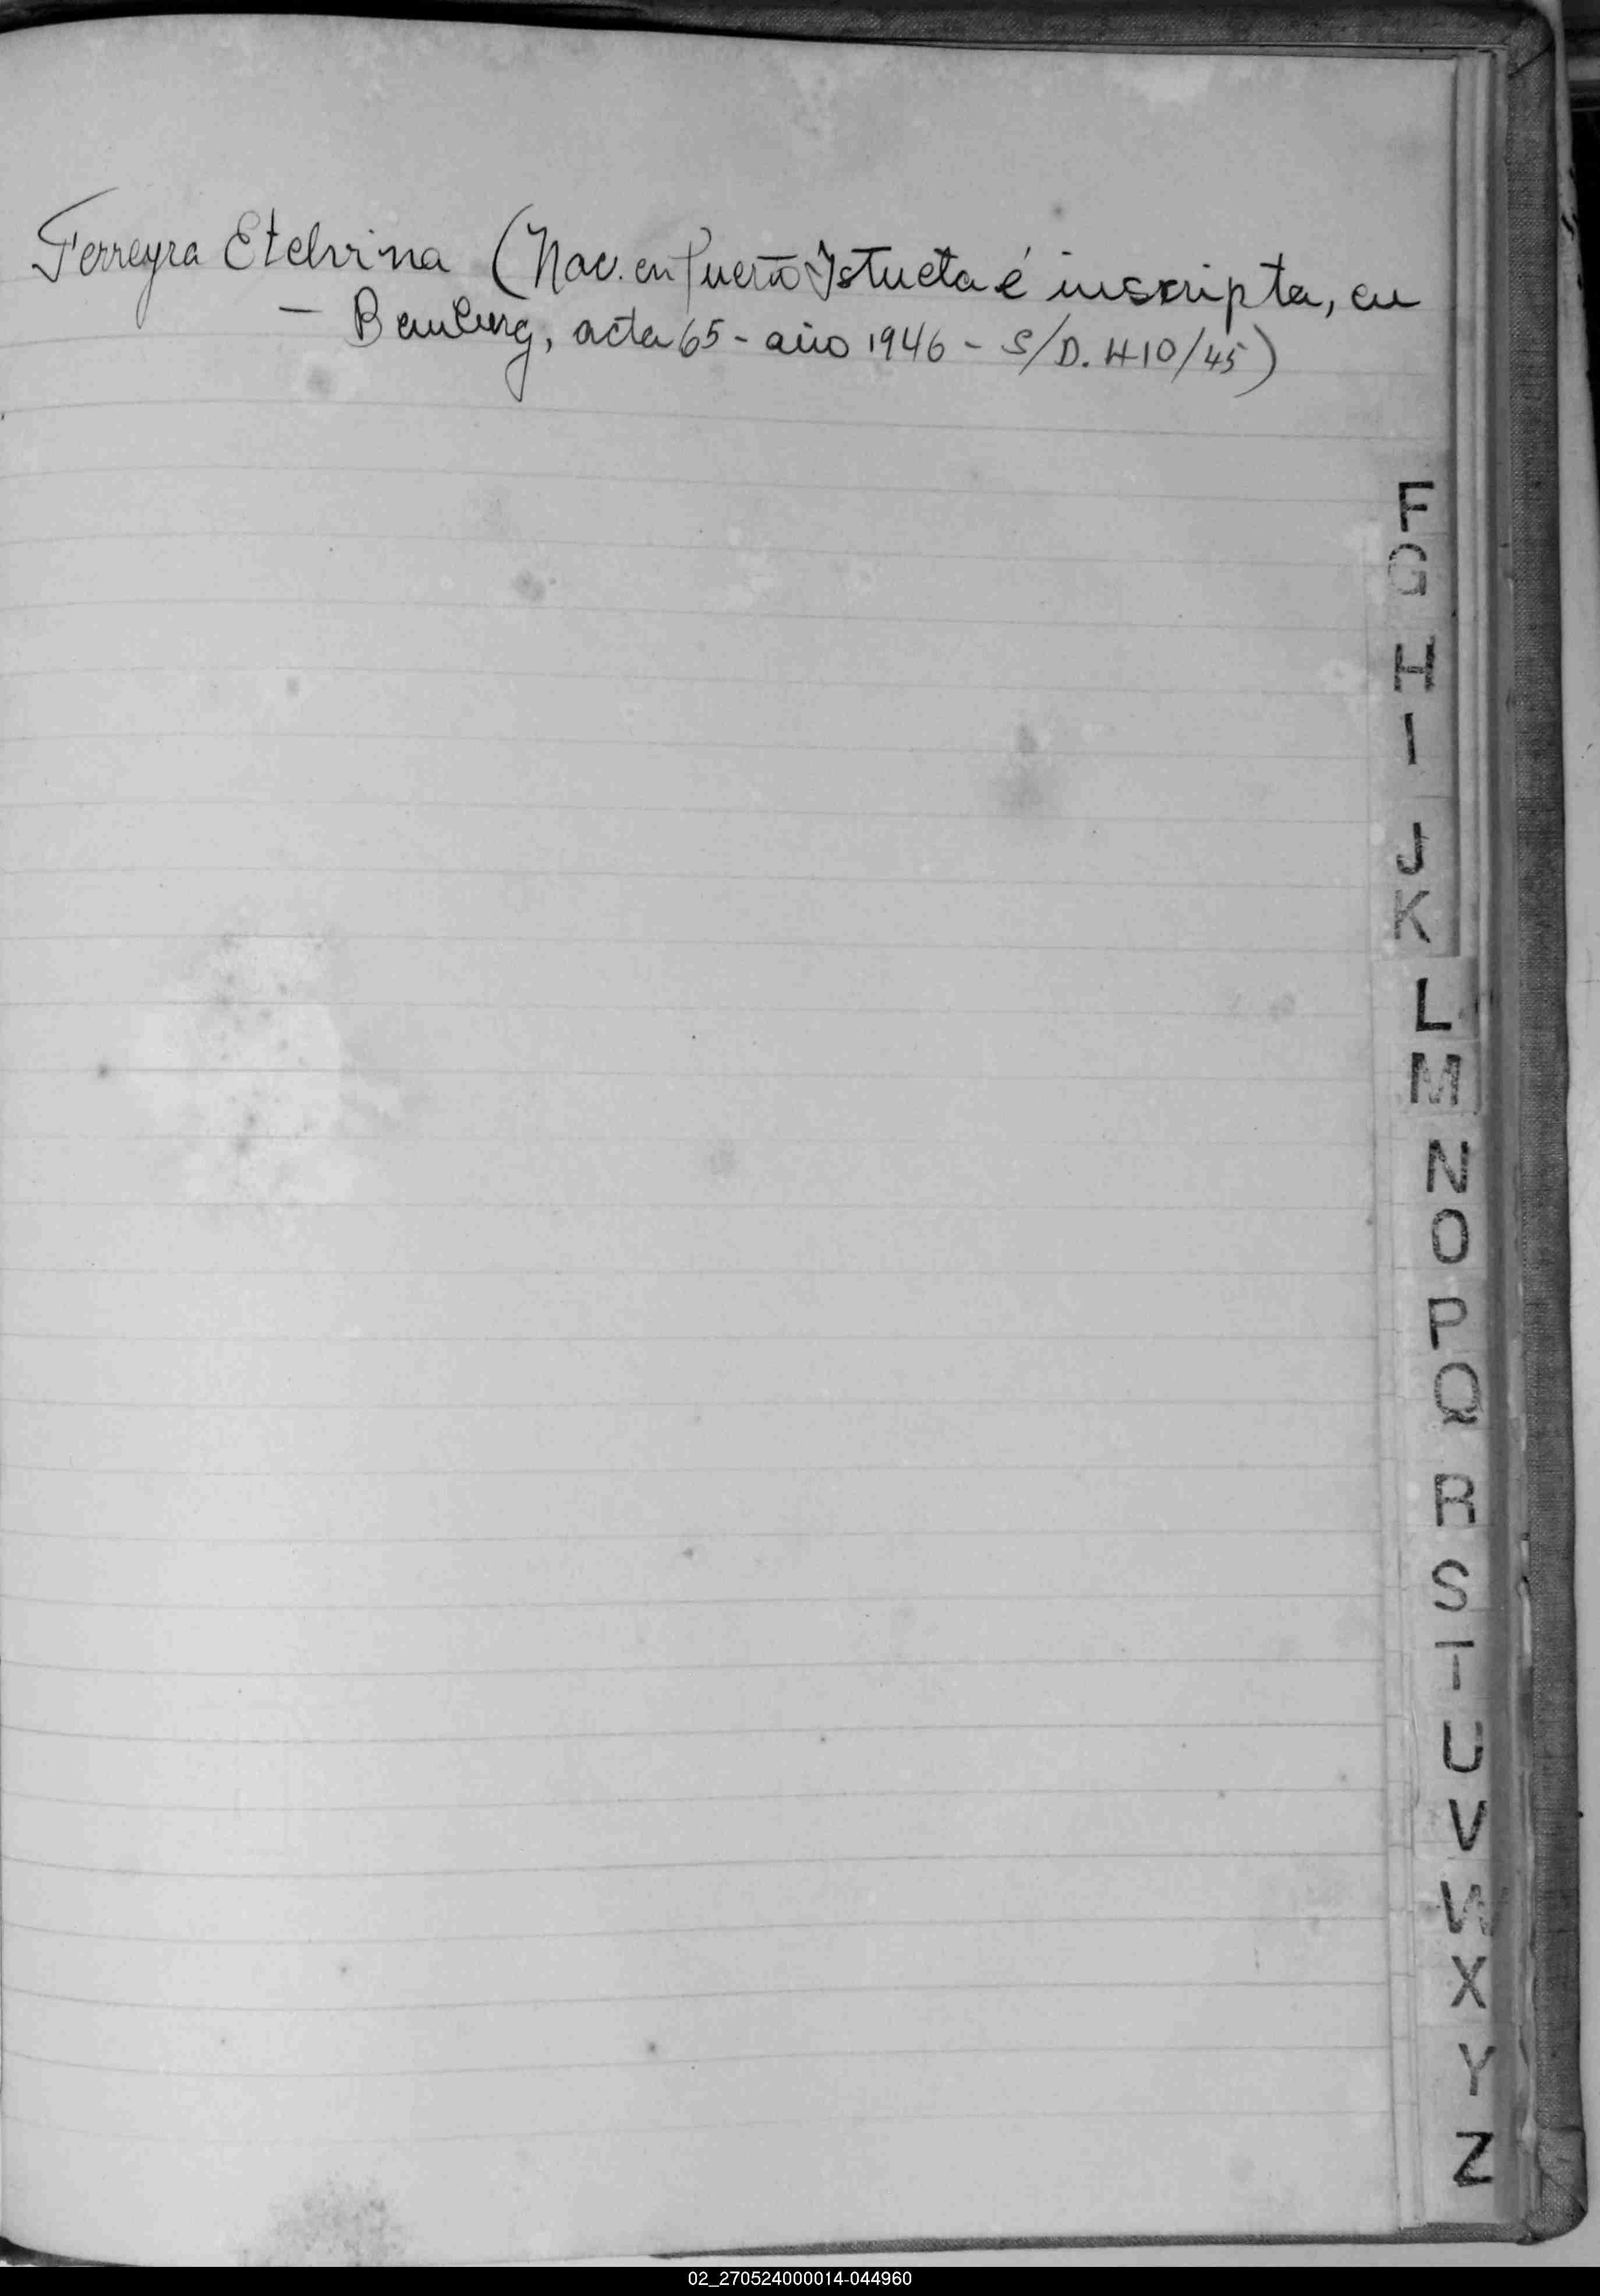 Ferreyra Etelvina (Nac. en Puerto Istueta é inscripta, en
— Bemberg, acta 65 - año 1946 - S/D. H10/45)
F
G
H
I
J
K
L
M
N
O
P
Q
R
S
T
U
V
W
X
Y
Z
02_270524000014-044960